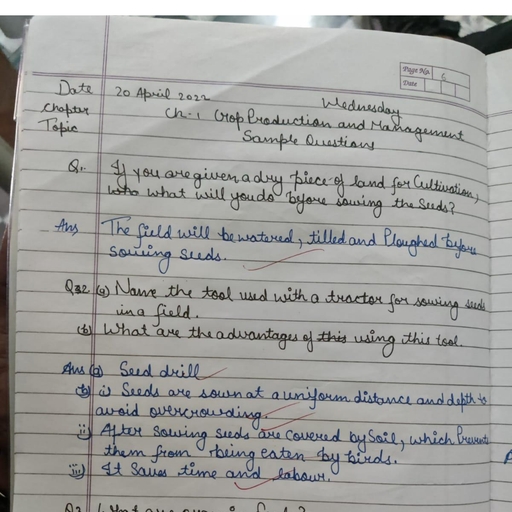 Page No. 6
Date
Wednesday
Date 20 April 2022
Chapter Ch-1 Crop Production and Management
Topic Sample Questions
Q1. If you are given a dry piece of land for Cultivation,
who what will you do before sowing the seeds?
Ans The field will be watered, tilled and Ploughed before
sowing seeds.
Q2 (a) Name the tool used with a tractor for sowing seeds
in a field.
(b) What are the advantages of this using this tool.
Ans (a) Seed drill
(b) i) Seeds are sown at a uniform distance and depth to
avoid overcrowding.
ii) After sowing seeds are covered by Soil, which Prevents
them from being eaten by birds.
iii) It Saves time and labour.